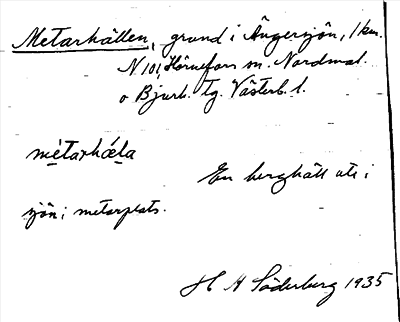 Metarhällen, grund i Ängersjön, 1 km.
N 101, Hörnefors sn. Nordmal.
o Bjurh. tg. Västerb. l.
mètarhǽla
En berghäll ute i
sjön; metarplats.
H A Söderberg 1935